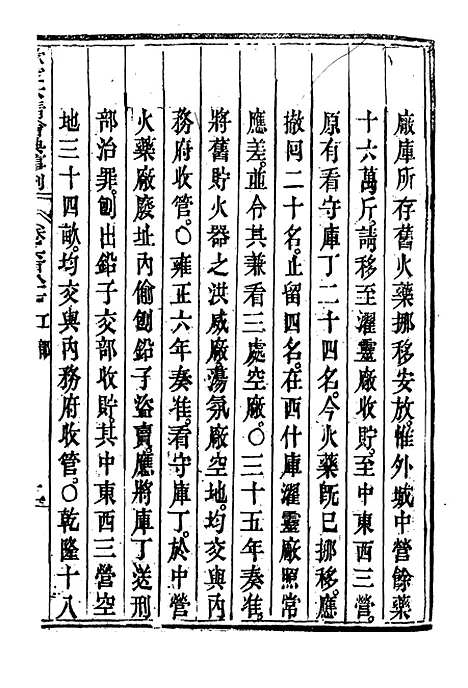 廠庫所存舊火藥挪移安放。惟外城中營餘藥
十六萬斤。請移至濯靈廠收貯。至中東西三營。
原有看守庫丁二十四名。今火藥旣已挪移。應
撤囘二十名。止留四名。在西什庫濯靈廠照常
應差。並令其兼看三處空廠。○三十五年奏准。
將舊貯火器之洪威廠蕩氛廠空地。均交與內
務府收管。○雍正六年奏准。看守庫丁。於中營
火藥廠廢址內偷刨鉛子盜賣。應將庫丁送刑
部治罪。刨出鉛子交部收貯。其中東西三營空
地三十四畝。均交與內務府收管。○乾隆十八
工部